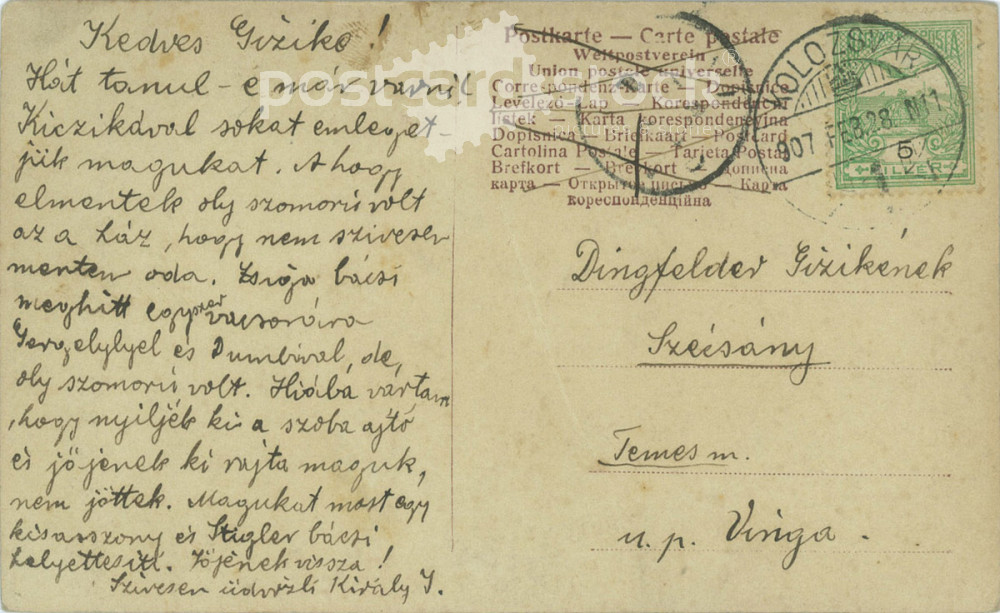 Kedves Gizike!
Hát tanul-e már varrni?
Kiczikával sokat emleget-
jük magukat. Ahogy
elmentek oly szomorú volt
az a ház, hogy nem szivesen
mentem oda. Zsiga bácsi
meghitt egyszer vacsorára
Gergelylyel és Dumbival, de,
oly szomorú volt. Hiába vártam,
hogy nyiljék ki a szoba ajtó
és jőjenek ki rajta maguk,
nem jöttek. Magukat most egy
kisasszony és Stigler bácsi
helyettesiti. Jőjenek vissza!
Szivesen üdvözli Király I.
Postkarte — Carte postale
Weltpostverein
Union postale universelle
Correspondenz-Karte — Dopisnice
Levelező-Lap — Korespondencni
Listek — Karta korespondencyjna
Dopisnica — Briefkaart — Postcard
Cartolina Postale — Tarjeta Postal
Brefkort — Brevkort — Дописна
карта — Открытое письмо — Карта
кореспонденційна
KOLOZSVÁR
907 FEB. 28. N11
5
FILLÉR
Dingfelder Gizikének
Szécsány
Temes m.
u. p. Vinga.